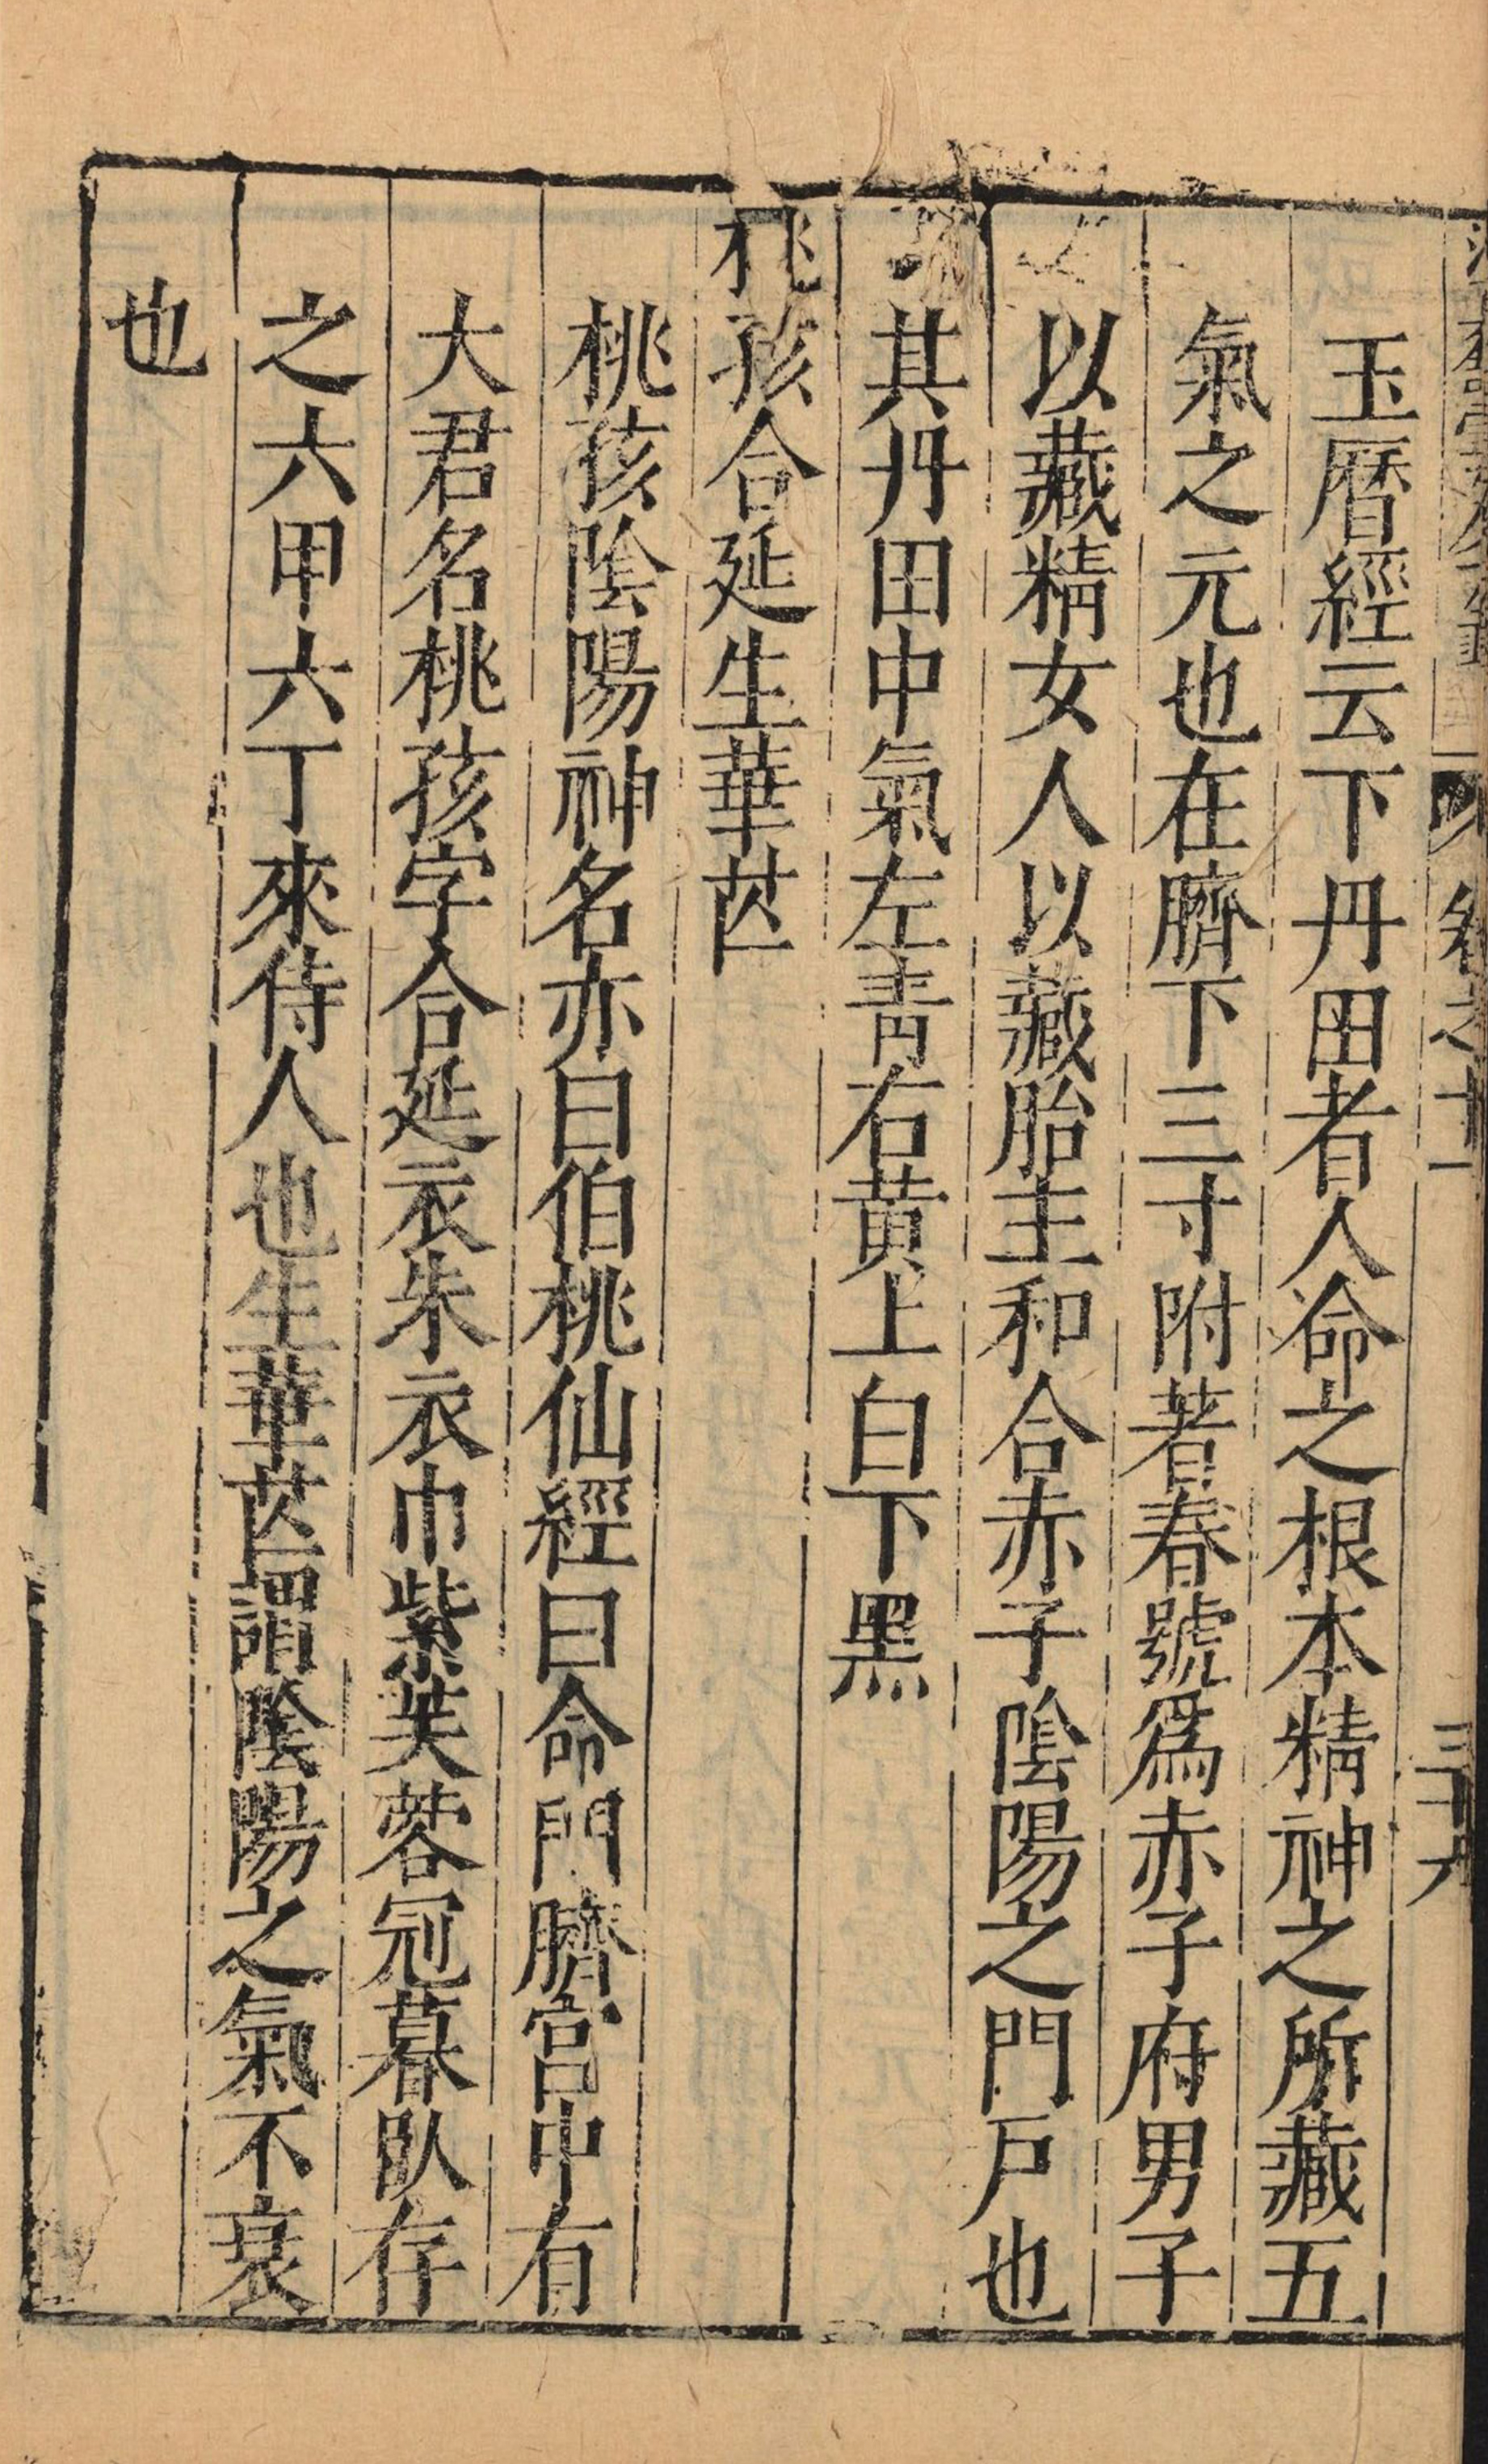 玉曆經云下丹田者人命之根本精神之所藏五
氣之元也在臍下三寸附著春號爲赤子府男子
以藏精女人以藏胎主和合赤子陰陽之門戸也
其丹田中氣左青右黃上白下黑
桃孩合延生華芘
桃孩陰陽神名亦曰伯桃仙經曰命門臍宮中有
大君名桃孩字合延衣朱衣巾紫芙蓉冠暮臥存
之六甲六丁來侍人也生華芘謂陰陽之氣不衰
也
卷之十一